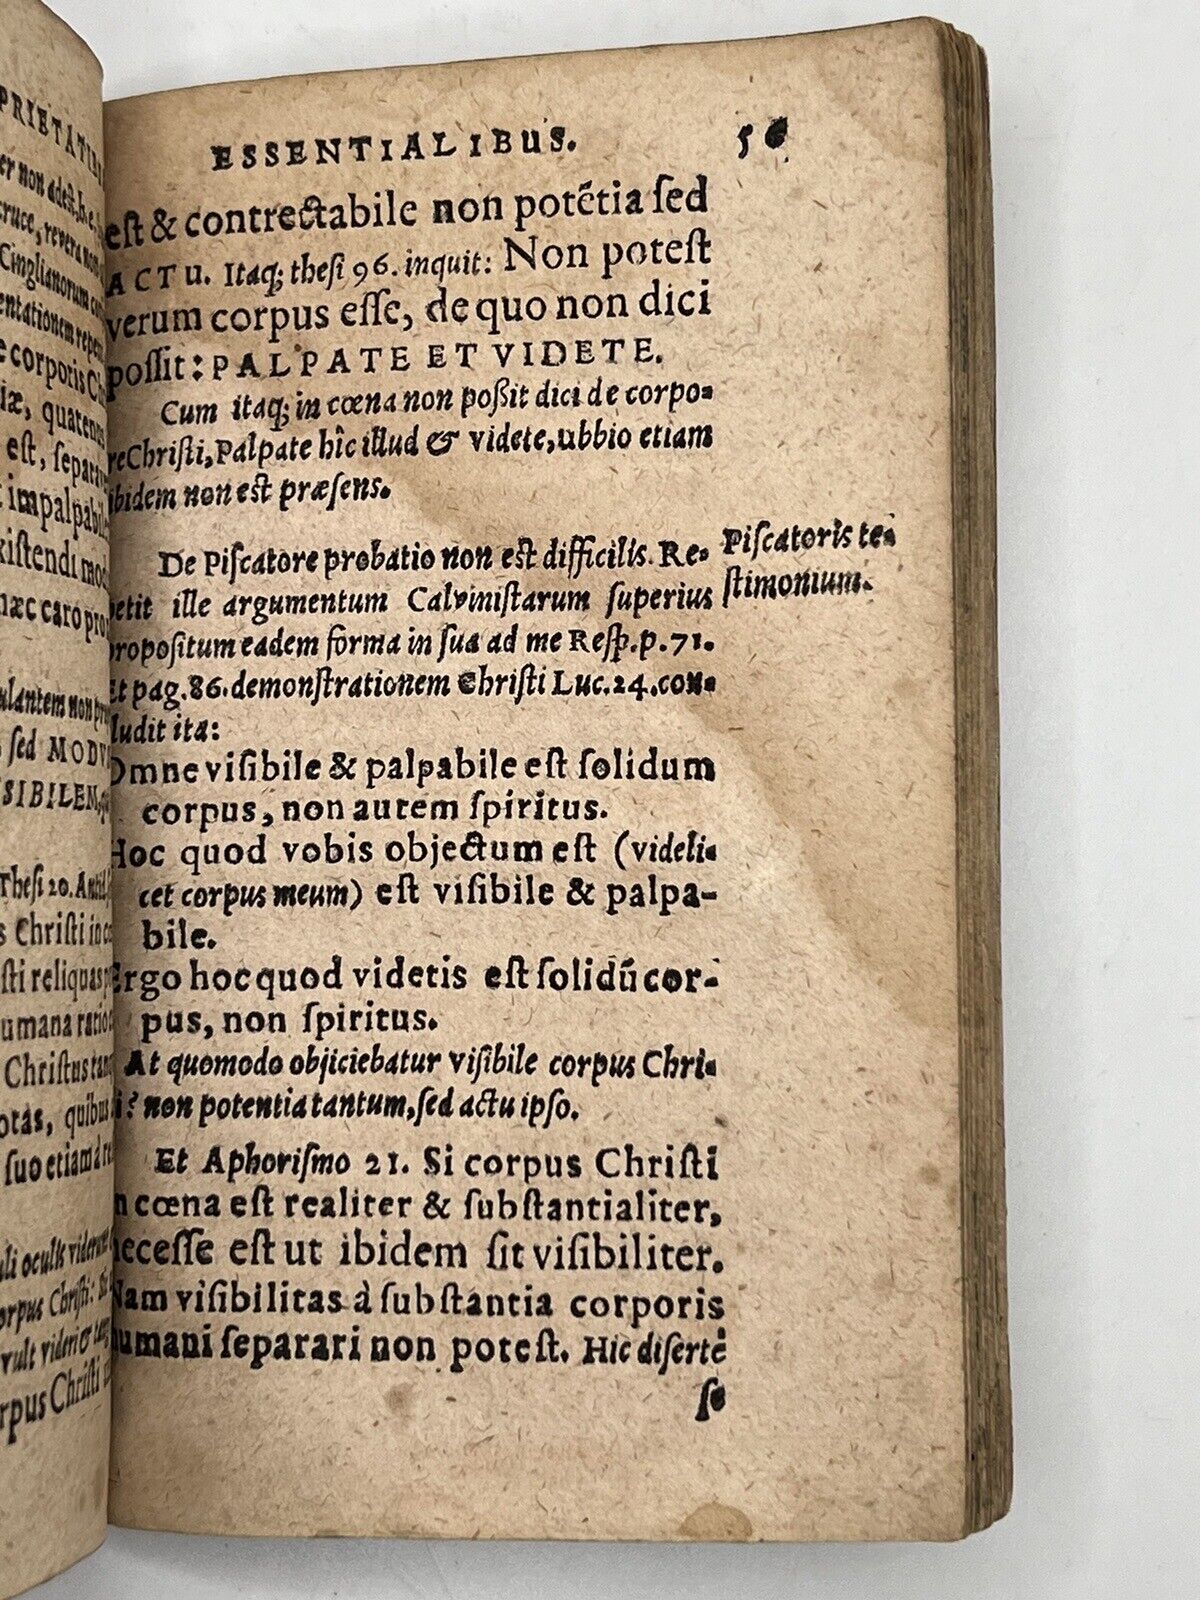 PRIETATIB
er non adest, h. e.
cruce, revera non
Cinglianorum
entationem repe
e corporis C
iæ, quatenus
est, separa
impalpabile
xistendi mod
hæc caro pro
ulantem non
sed MODU
SIBILEM,
Thesi 20. Anti
s Christi in
sti reliquas
umana ratio
Christus tan
otas, quibus
suo etiam à
uli oculis videru
orpus Christi:
vult videri &
rpus Christi
ESSENTIALIBUS. 56
est & contrectabile non potẽtia sed
ACTU. Itaq; thesi 96. inquit: Non potest
verum corpus esse, de quo non dici
possit: PALPATE ET VIDETE.
Cum itaq; in cœna non poßit dici de corpo-
re Christi, Palpate hîc illud & videte, ubbio etiam
ibidem non est præsens.
De Piscatore probatio non est difficilis. Re-
petit ille argumentum Calvinistarum superius
propositum eadem forma in sua ad me Resp. p. 71.
Et pag. 86. demonstrationem Christi Luc. 24. con-
cludit ita:
Piscatoris te-
stimonium.
Omne visibile & palpabile est solidum
corpus, non autem spiritus.
Hoc quod vobis objectum est (videli-
cet corpus meum) est visibile & palpa-
bile.
Ergo hoc quod videtis est solidũ cor-
pus, non spiritus.
At quomodo objiciebatur visibile corpus Chri-
sti? non potentia tantum, sed actu ipso.
Et Aphorismo 21. Si corpus Christi
in cœna est realiter & substantialiter,
necesse est ut ibidem sit visibiliter.
Nam visibilitas à substantia corporis
humani separari non potest. Hic disertè
se